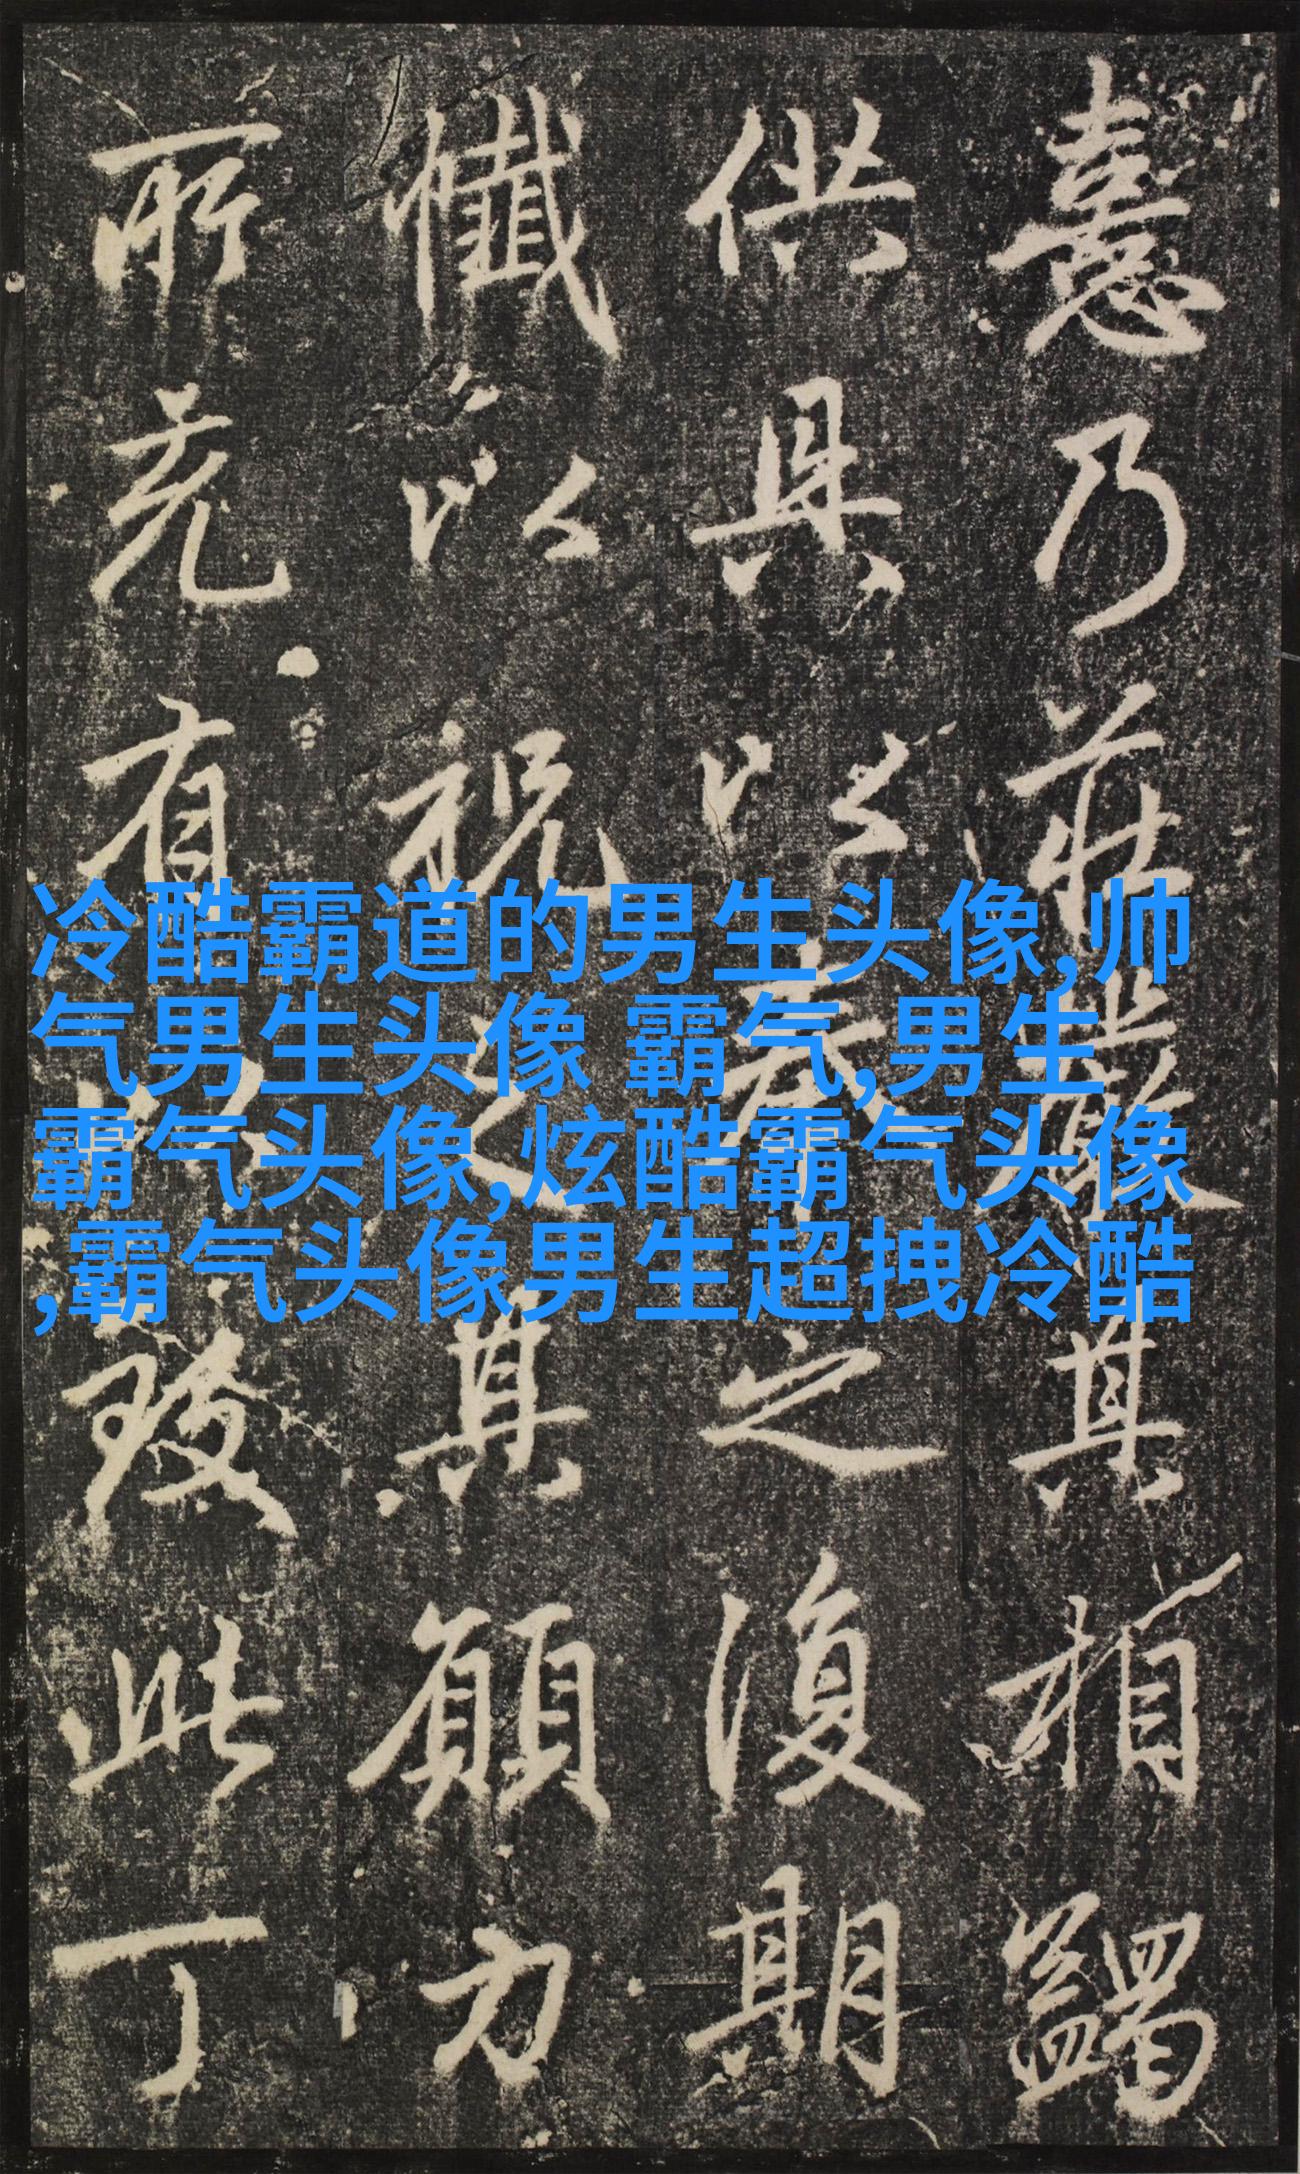 憙乃莊嚴其相蠲
供具以養之復期
懺以祝之其願方
所有此丁
冷酷霸道的男生头像,帅
气男生头像 霸气,男生
霸气头像,炫酷霸气头像
,霸气头像男生超拽冷酷